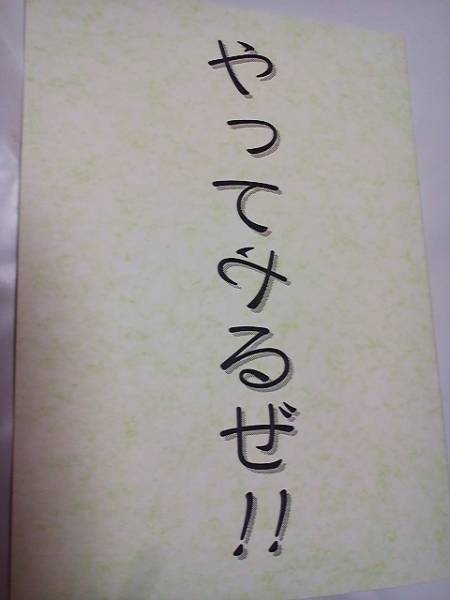 やってみるぜ!!